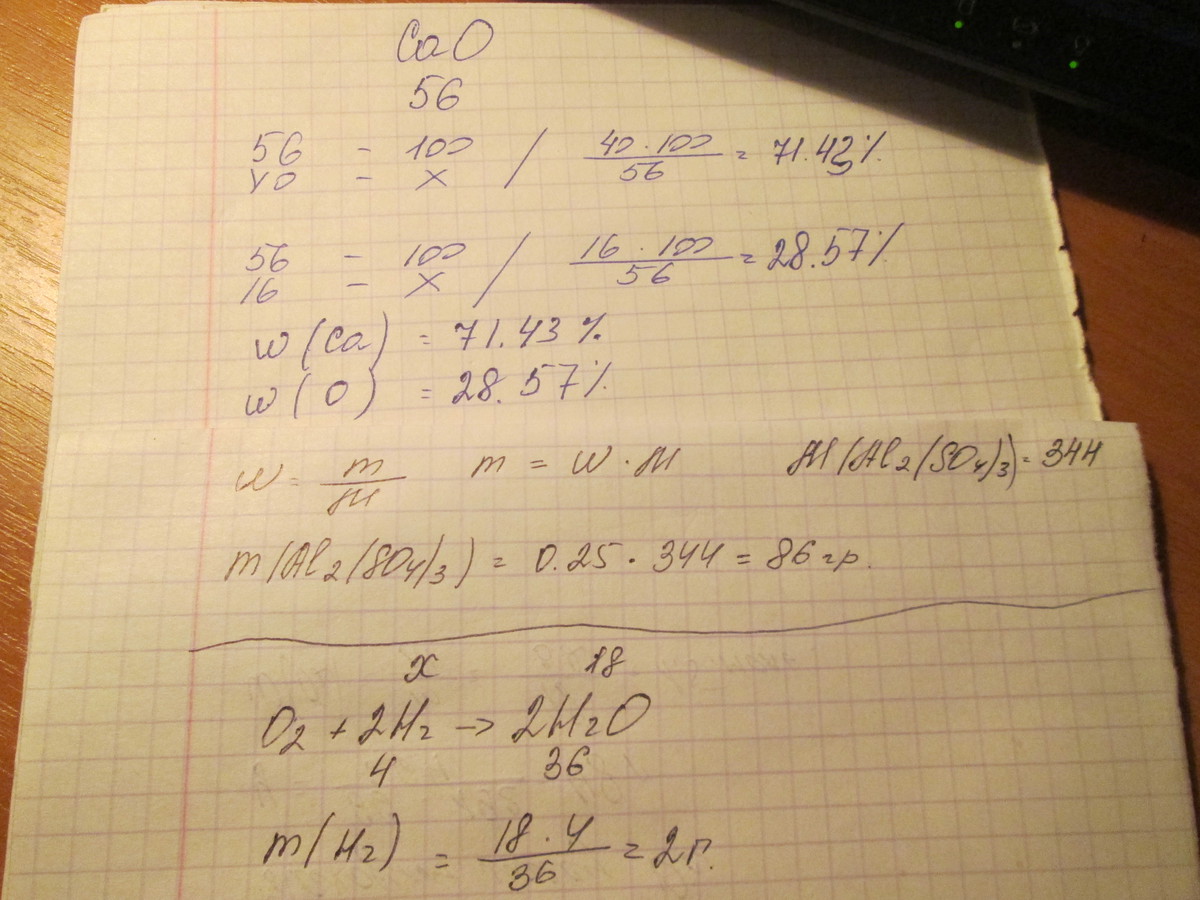 CaO
56
56 - 100 / 40 · 100 / 56 = 71.43%
40 - x
56 - 100 / 16 · 100 / 56 = 28.57%
16 - x
w (Ca) = 71.43 %
w (O) = 28.57%
w = m / M m = w · M M(Al2(SO4)3) = 344
m(Al2(SO4)3) = 0.25 · 344 = 86 гр.
x 18
O2 + 2H2 → 2H2O
4 36
m(H2) = 18 · 4 / 36 = 2г.